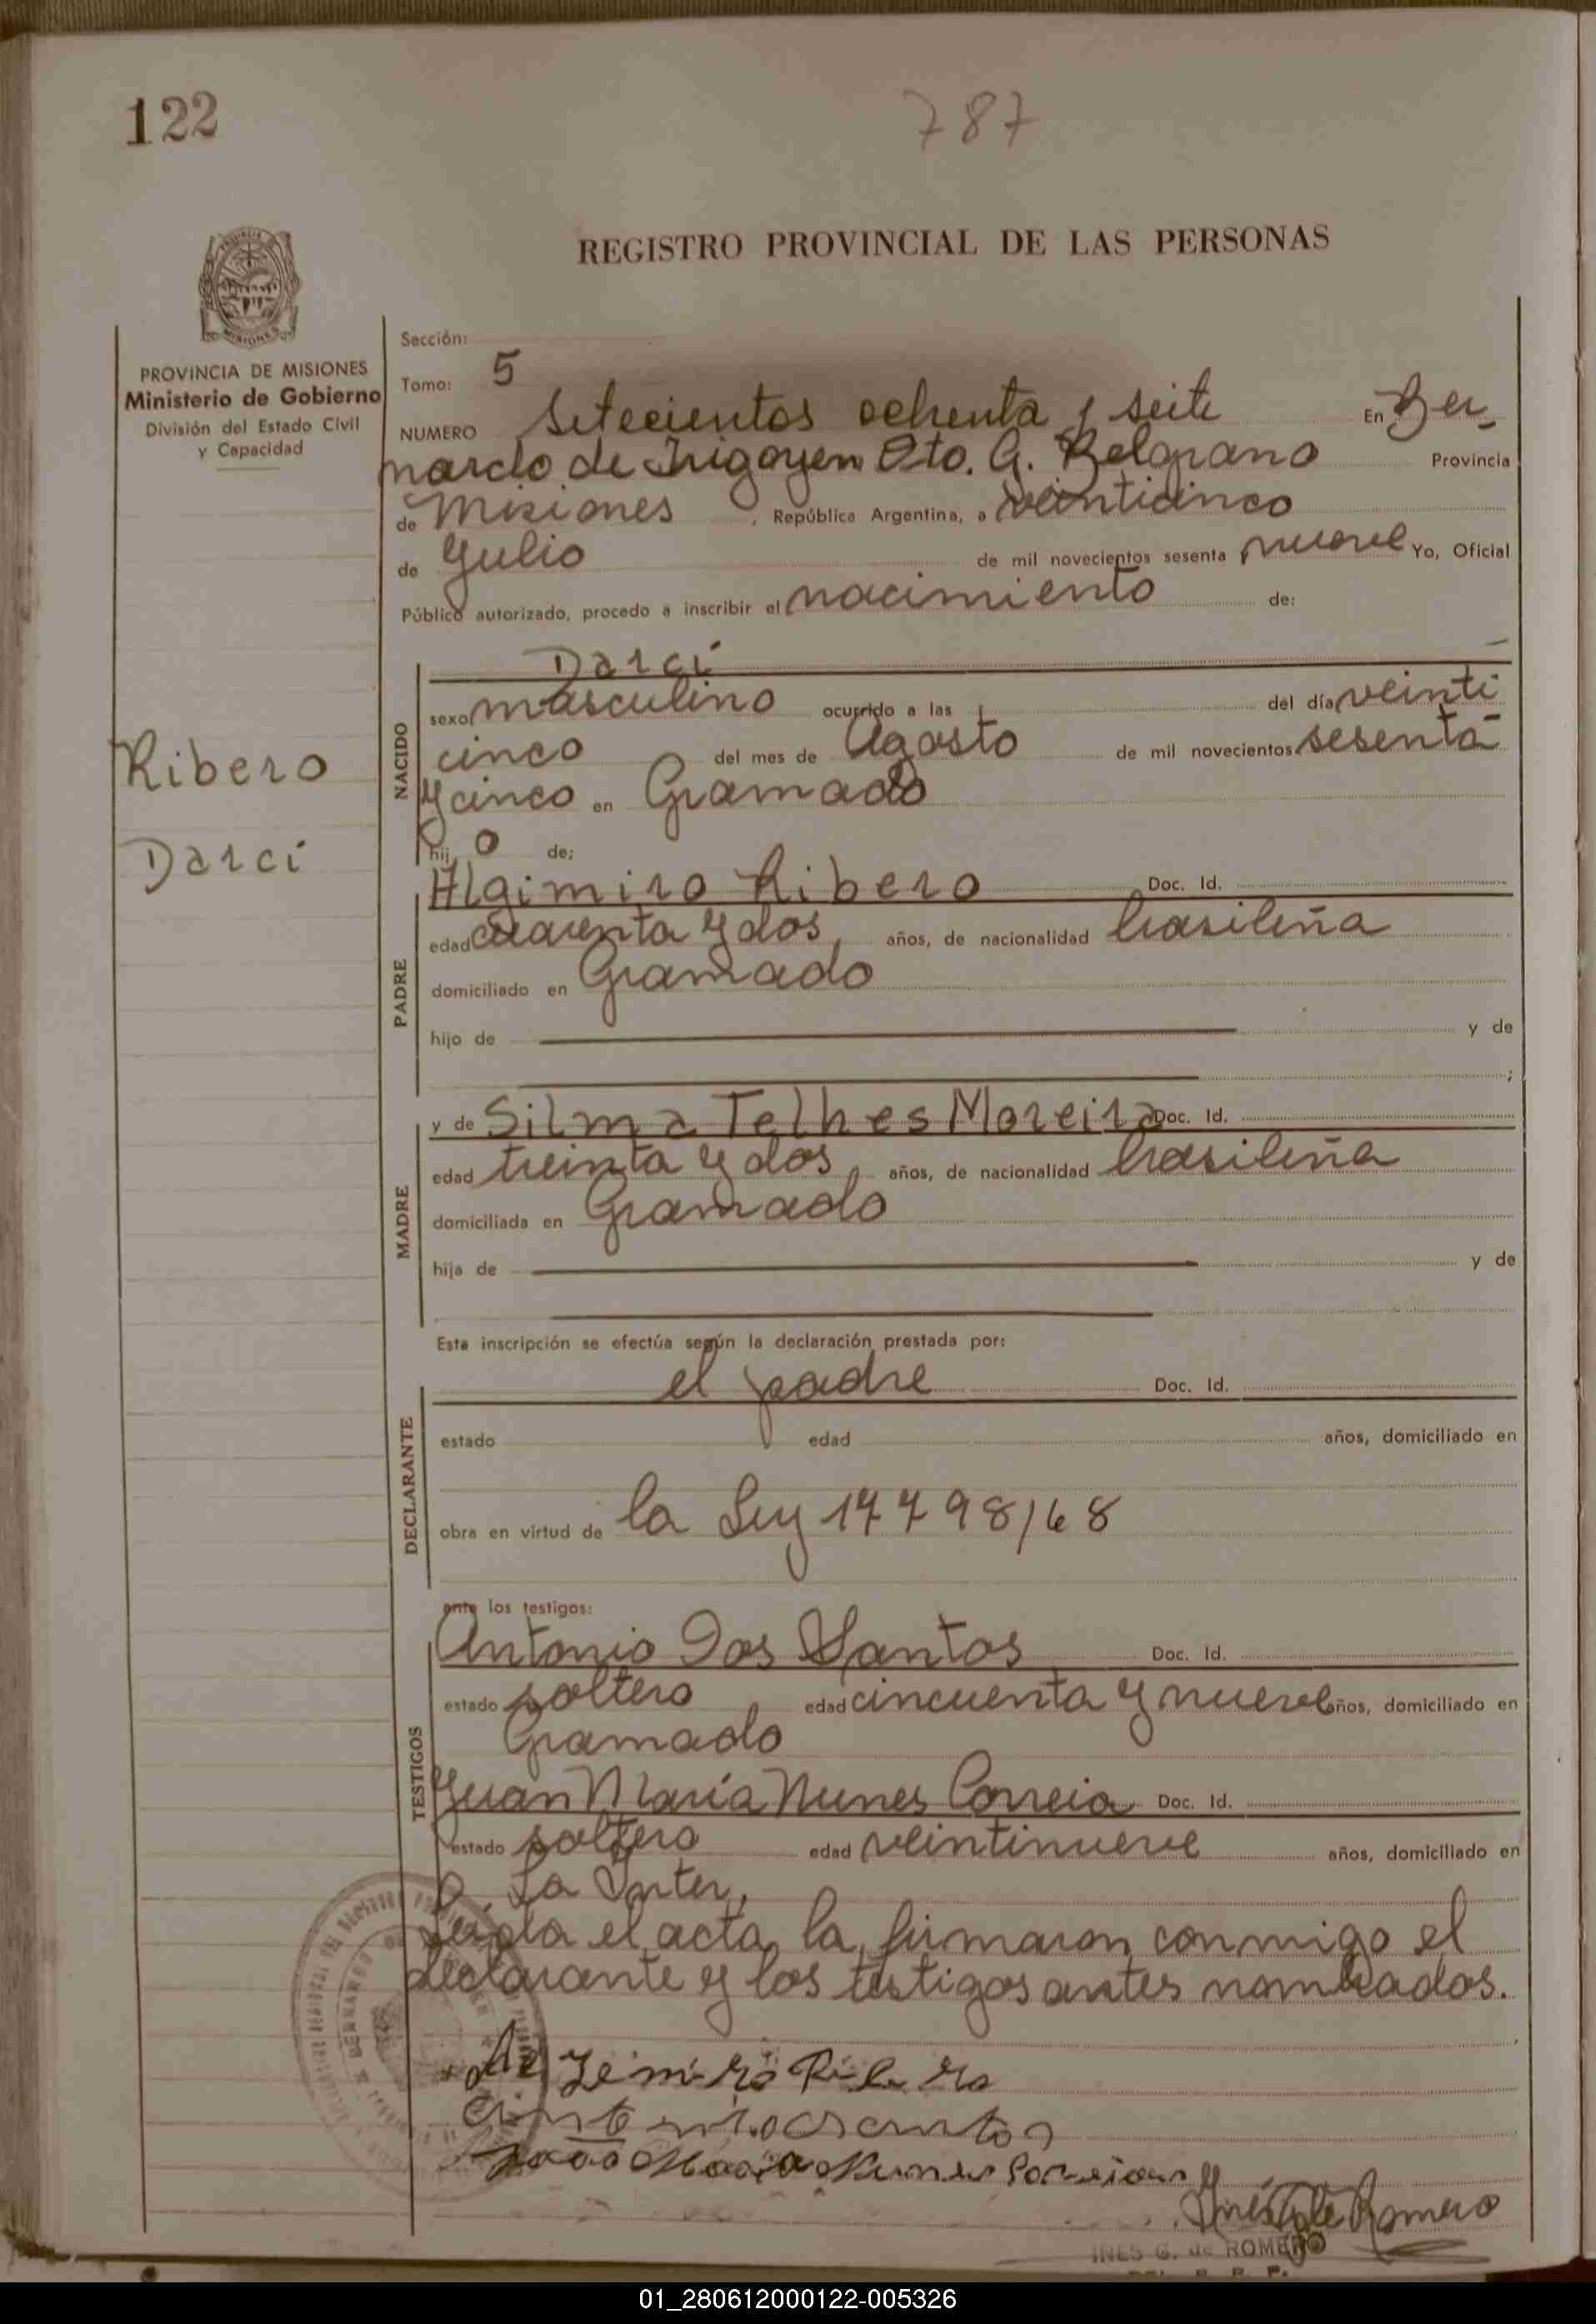 122
787
REGISTRO PROVINCIAL DE LAS PERSONAS
PROVINCIA DE MISIONES
Ministerio de Gobierno
División del Estado Civil
y Capacidad
Sección:
Tomo: 5
NUMERO Setecientos ochenta y seite En Ber_
nardo de Irigoyen Dto. G. Belgrano Provincia
de Misiones, República Argentina, a veinticinco
de Julio de mil novecientos sesenta nueve Yo, Oficial
Público autorizado, procedo a inscribir el nacimiento de:
NACIDO
Darci
sexo masculino ocurrido a las del día veinti
cinco del mes de Agosto de mil novecientos sesenta
y cinco en Gramado
hij o de;
Ribero
Darci
PADRE
Algimiro Ribero Doc. Id.
edad cuarenta y dos, años, de nacionalidad brasileña
domiciliado en Gramado
hijo de y de
;
MADRE
y de Silma Telhes Moreira Doc. Id.
edad treinta y dos, años, de nacionalidad brasileña
domiciliada en Gramado
hija de y de
Esta inscripción se efectúa según la declaración prestada por:
DECLARANTE
el padre Doc. Id.
estado edad años, domiciliado en
obra en virtud de la Ley 17798/68
ante los testigos:
TESTIGOS
Antonio Dos Santos Doc. Id.
estado soltero, edad cincuenta y nueve años, domiciliado en
Gramado
Juan María Nunes Correia Doc. Id.
estado soltero edad veintinueve años, domiciliado en
La Inter,
Leida el acta, la firmaron conmigo el
declarante y los testigos antes nombrados.
INES G. de ROMERO
01_280612000122-005326